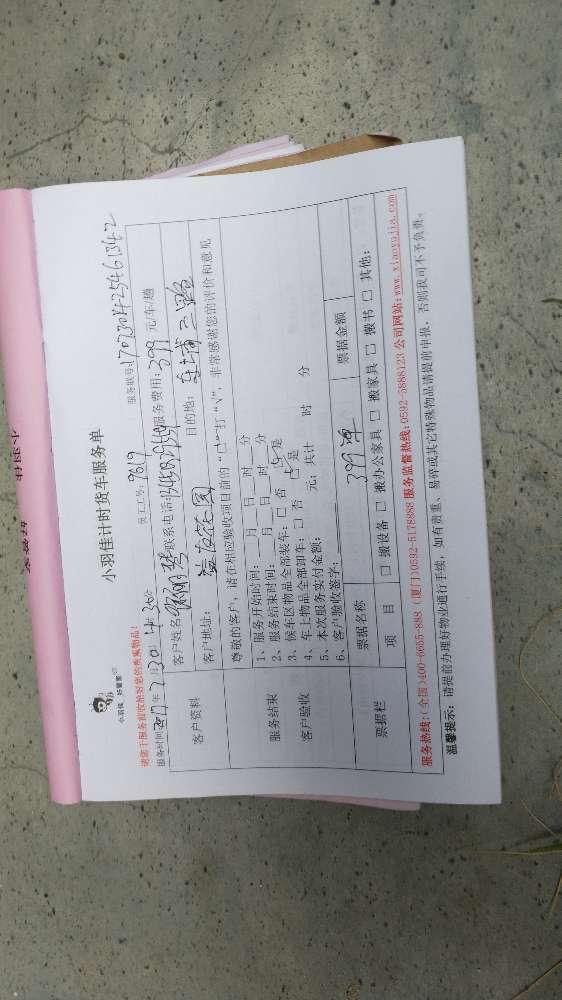 小羽佳计时货车服务单
小羽佳 好管家
请您于服务前收拾好您的贵重物品!
服务时间:2017年7月30日
员工工号:9619
服务账号:170730425461342
客户资料
客户姓名
联系电话:
服务费用:399 元/车/趟
客户地址:
花园
目的地:
路
服务结束
客户验收
尊敬的客户,请在相应验收项目前的“□”打“√”,非常感谢您的评价和意见
1、服务开始时间: 月 日 时 分
2、服务结束时间: 月 日 时 分
3、候车区物品全部装车:□ 否 是
4、车上物品全部卸车:□ 否 是
5、本次服务实付金额: 元;共计 时 分
6、客户验收签字:
票据栏
票据名称
399
票据金额
项 目
□ 搬设备 □ 搬办公家具 □ 搬家具 □ 搬书 □ 其他:
服务热线:(全国)400-6655-888 (厦门)0592-5178888 服务监督热线:0592-5888123 公司网站:www.xiaoyujia.com
温馨提示: 请提前办理好物业通行手续,如有贵重、易碎或其它特殊物品请提前申报,否则我司不予负责。